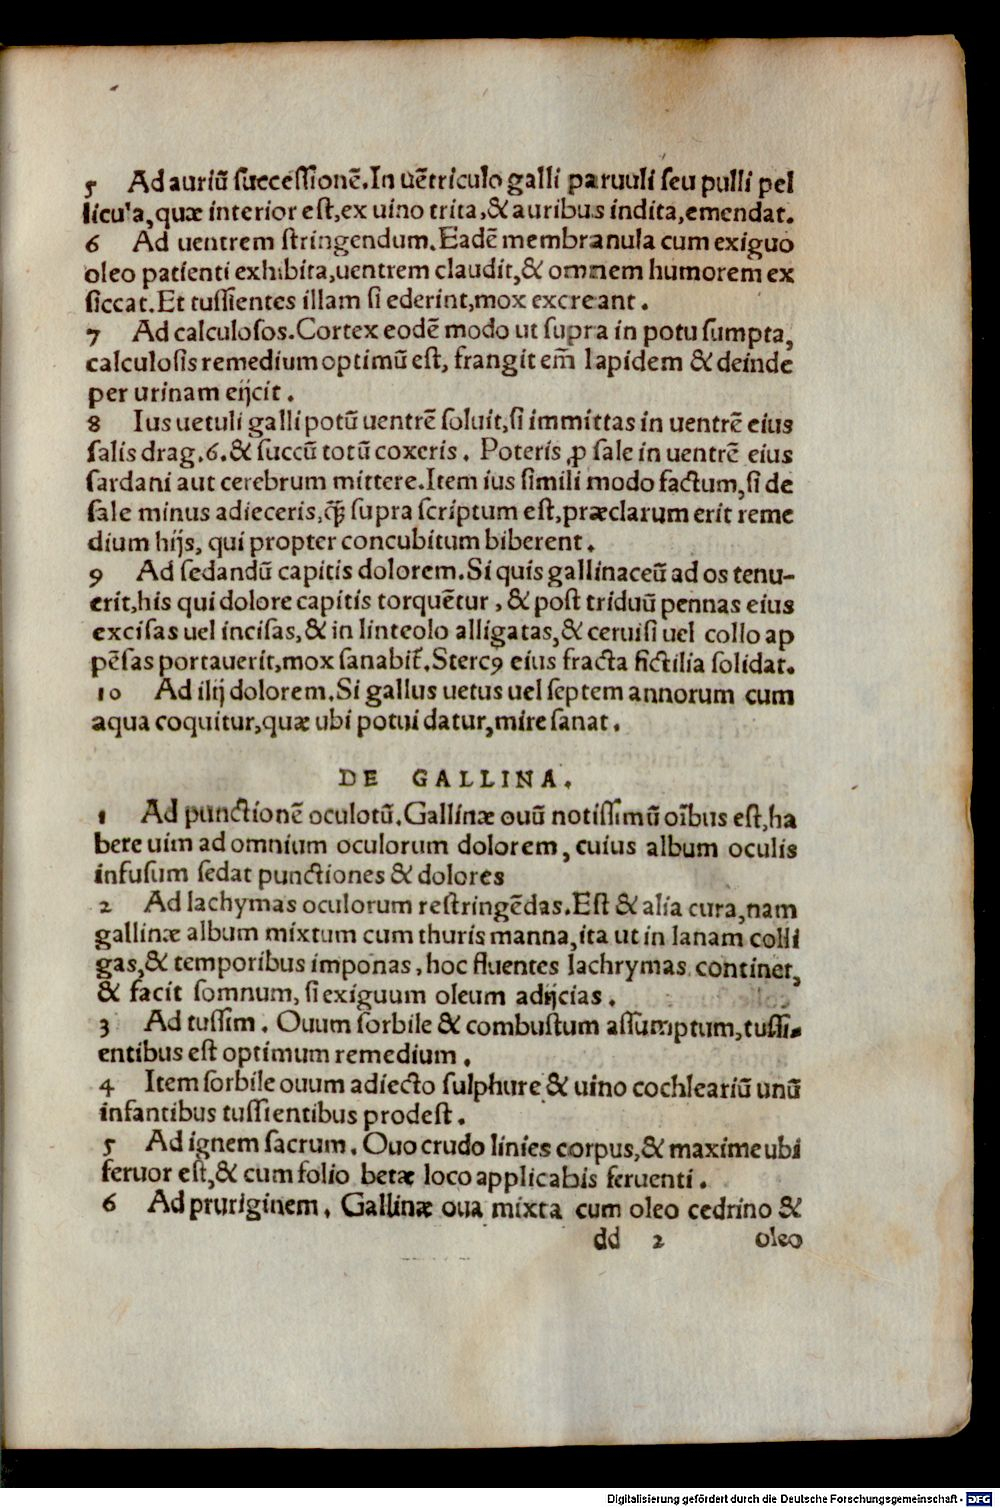 14
5 Ad auriū successionē. In uētriculo galli paruuli seu pulli pel
licula, quæ interior est, ex uino trita, & auribus indita, emendat.
6 Ad uentrem stringendum. Eadē membranula cum exiguo
oleo patienti exhibita, uentrem claudit, & omnem humorem ex
siccat. Et tussientes illam si ederint, mox excreant.
7 Ad calculosos. Cortex eodē modo ut supra in potu sumpta,
calculosis remedium optimū est, frangit em̄ lapidem & deinde
per urinam eijcit.
8 Ius uetuli galli potū uentrē soluit, si immittas in uentrē eius
salis drag. 6. & succū totū coxeris. Poteris ꝓ sale in uentrē eius
sardani aut cerebrum mittere. Item ius simili modo factum, si de
sale minus adieceris, q̄ꝫ supra scriptum est, præclarum erit reme
dium hijs, qui propter concubitum biberent.
9 Ad sedandū capitis dolorem. Si quis gallinaceū ad os tenu-
erit, his qui dolore capitis torquētur, & post triduū pennas eius
excisas uel incisas, & in linteolo alligatas, & ceruisi uel collo ap
pēsas portauerit, mox sanabit̃. Stercꝰ eius fracta fictilia solidat.
10 Ad ilij dolorem. Si gallus uetus uel septem annorum cum
aqua coquitur, quæ ubi potui datur, mire sanat.
DE GALLINA.
1 Ad punctionē oculotū. Gallinæ ouū notissimū oībus est, ha
bere uim ad omnium oculorum dolorem, cuius album oculis
infusum sedat punctiones & dolores
2 Ad lachymas oculorum restringēdas. Est & alia cura, nam
gallinæ album mixtum cum thuris manna, ita ut in lanam colli
gas, & temporibus imponas, hoc fluentes lachrymas continet,
& facit somnum, si exiguum oleum adijcias.
3 Ad tussim. Ouum sorbile & combustum assumptum, tussi-
entibus est optimum remedium.
4 Item sorbile ouum adiecto sulphure & uino cochleariū unū
infantibus tussientibus prodest.
5 Ad ignem sacrum. Ouo crudo linies corpus, & maxime ubi
feruor est, & cum folio betæ loco applicabis feruenti.
6 Ad pruriginem. Gallinæ oua mixta cum oleo cedrino &
dd 2 oleo
Digitalisierung gefördert durch die Deutsche Forschungsgemeinschaft - DFG